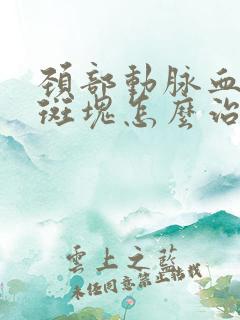 頚部動脉血
斑塊怎麼治
雲上之藍
未经同意禁止转载